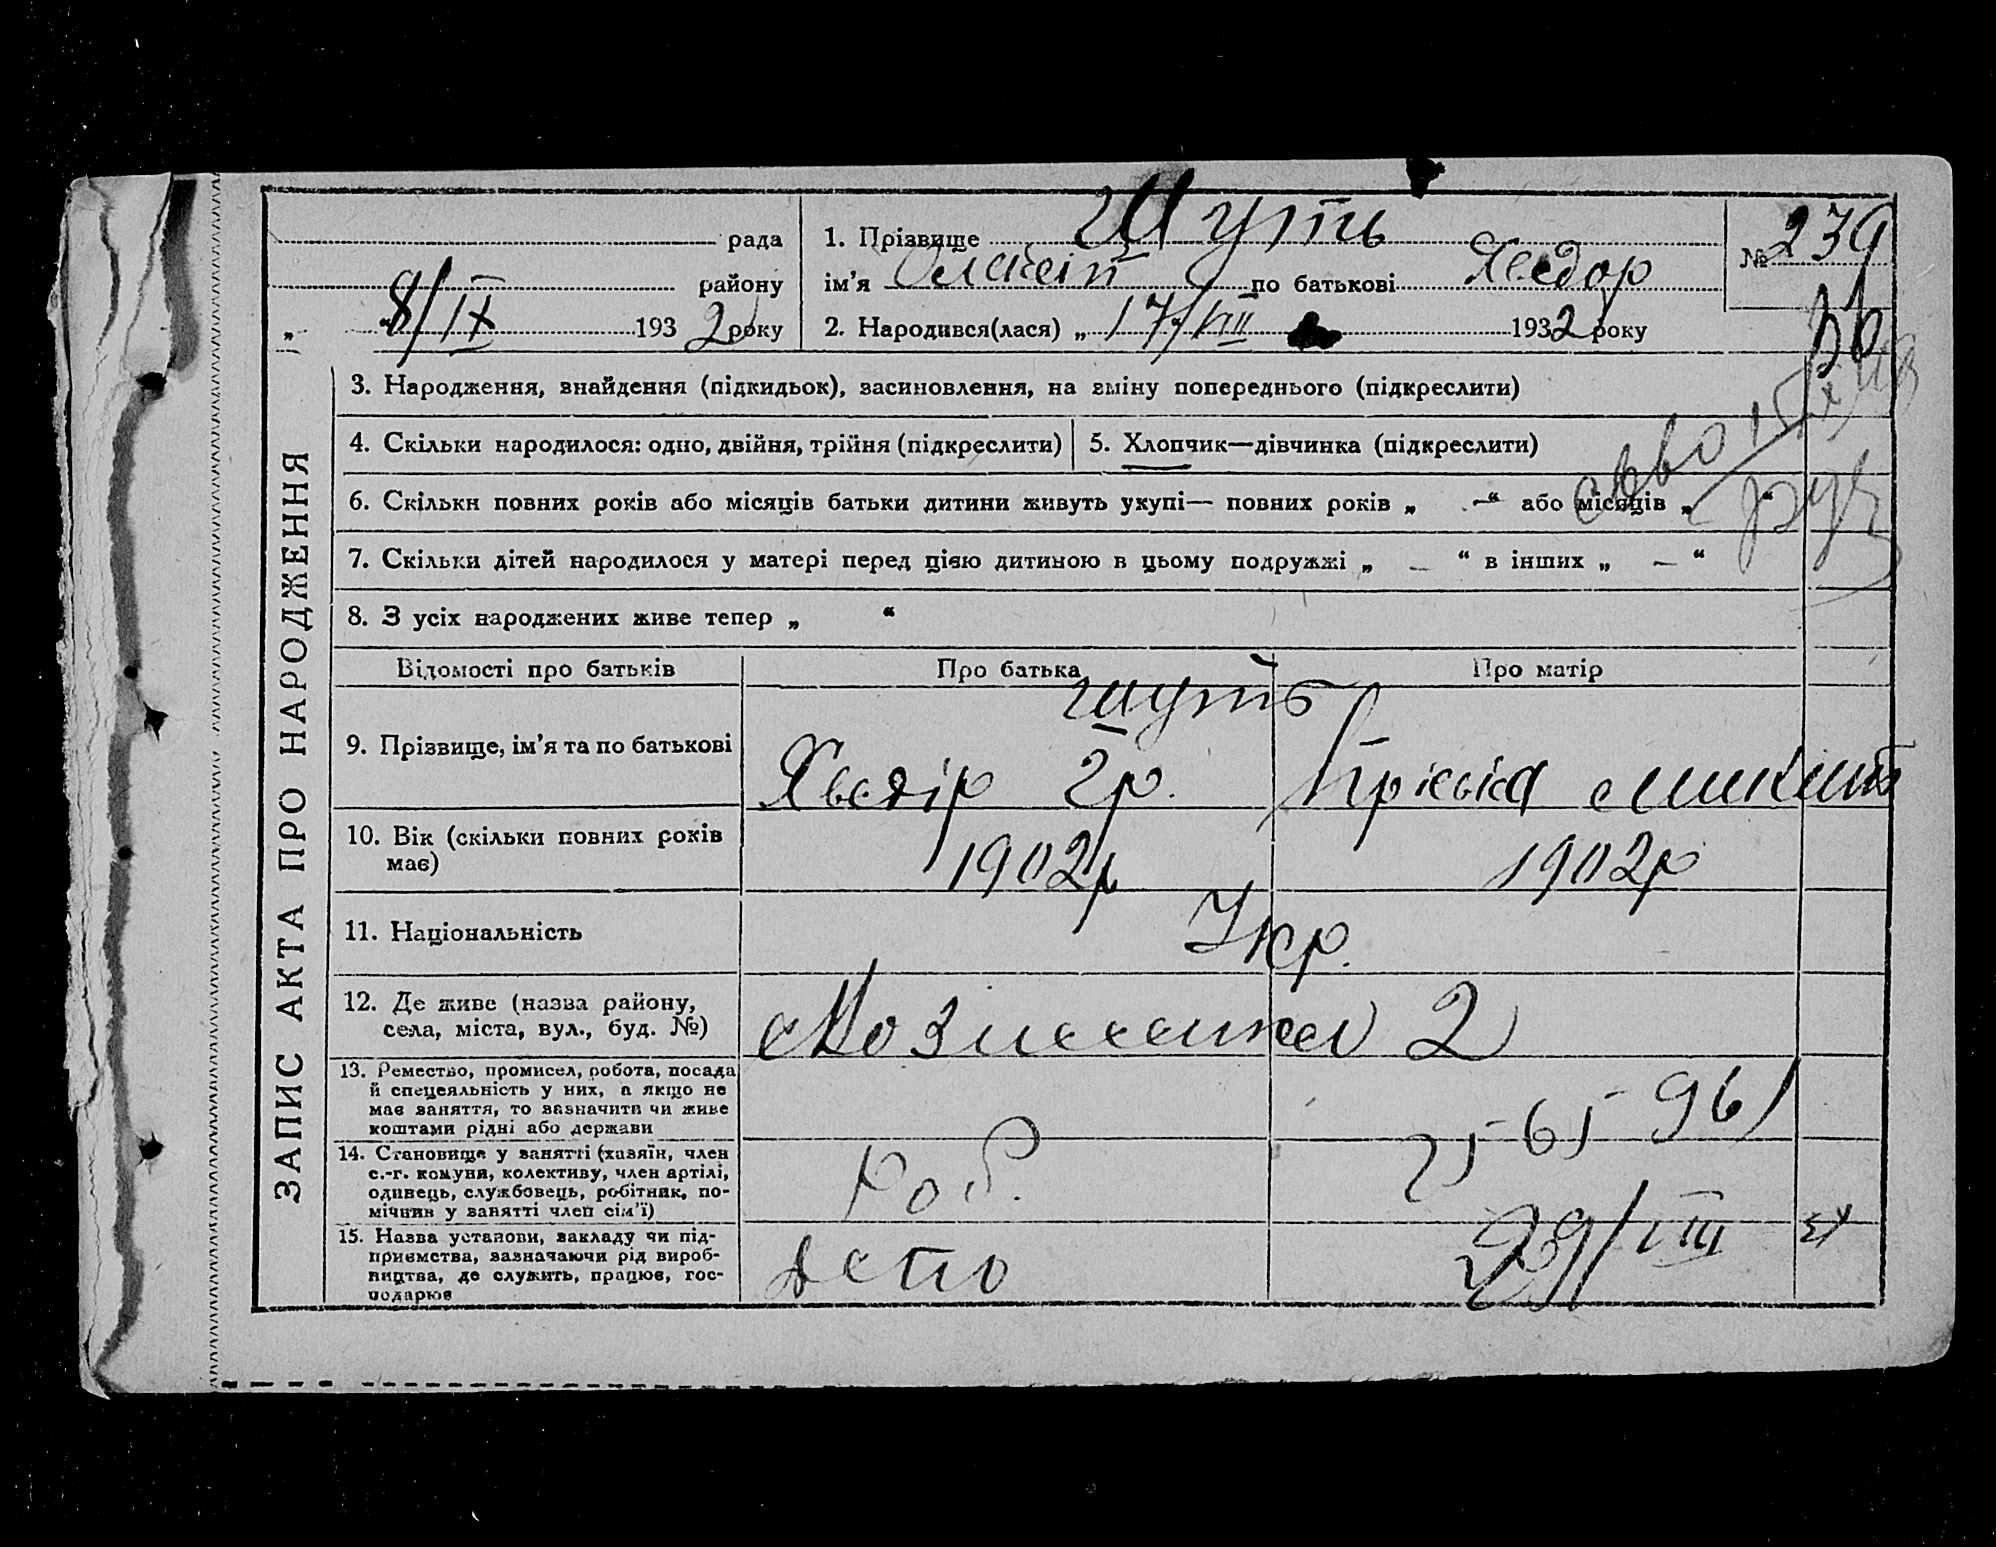 ЗАПИС АКТА ПРО НАРОДЖЕННЯ
рада
району
„ 8/IX 1932 року
1. Прізвище Шуть
ім'я по батькові Хведор
2. Народився(лася) „ 17/VIII 1932 року
№ 239
3. Народження, внайдення (підкидьок), засиновлення, на зміну попереднього (підкреслити)
4. Скільки народилося: одно, двійня, трійня (підкреслити)
5. Хлопчик—дівчинка (підкреслити)
6. Скільки повних років або місяців батьки дитини живуть укупі— повних років „ —“ або місяців „ “
7. Скільки дітей народилося у матері перед цією дитиною в цьому подружжі „ — “ в інших „ — “
8. З усіх народжених живе тепер „ “
Відомості про батьків
Про батька
Про матір
9. Прізвище, ім'я та по батькові
Шуть
Хведір Гр.
Пріська Микит
10. Вік (скільки повних років має)
1902р
1902р
11. Національність
Укр.
12. Де живе (назва району,
села, міста, вул., буд. №)
2
13. Ремество, промисел, робота, посада
й спецеяльність у них, а якщо не
має заняття, то зазначити чи живе
коштами рідні або держави
25-65-961
14. Становище у занятті (хазяїн, член
с.-г. комуни, колективу, член артілі,
одивець, службовець, робітник, по-
мічник у занятті член сім'ї)
роб.
15. Назва установи, закладу чи під-
приємства, зазначаючи рід вироб-
ництва, де служить, працює, гос-
подарює
Депо
29/VIII